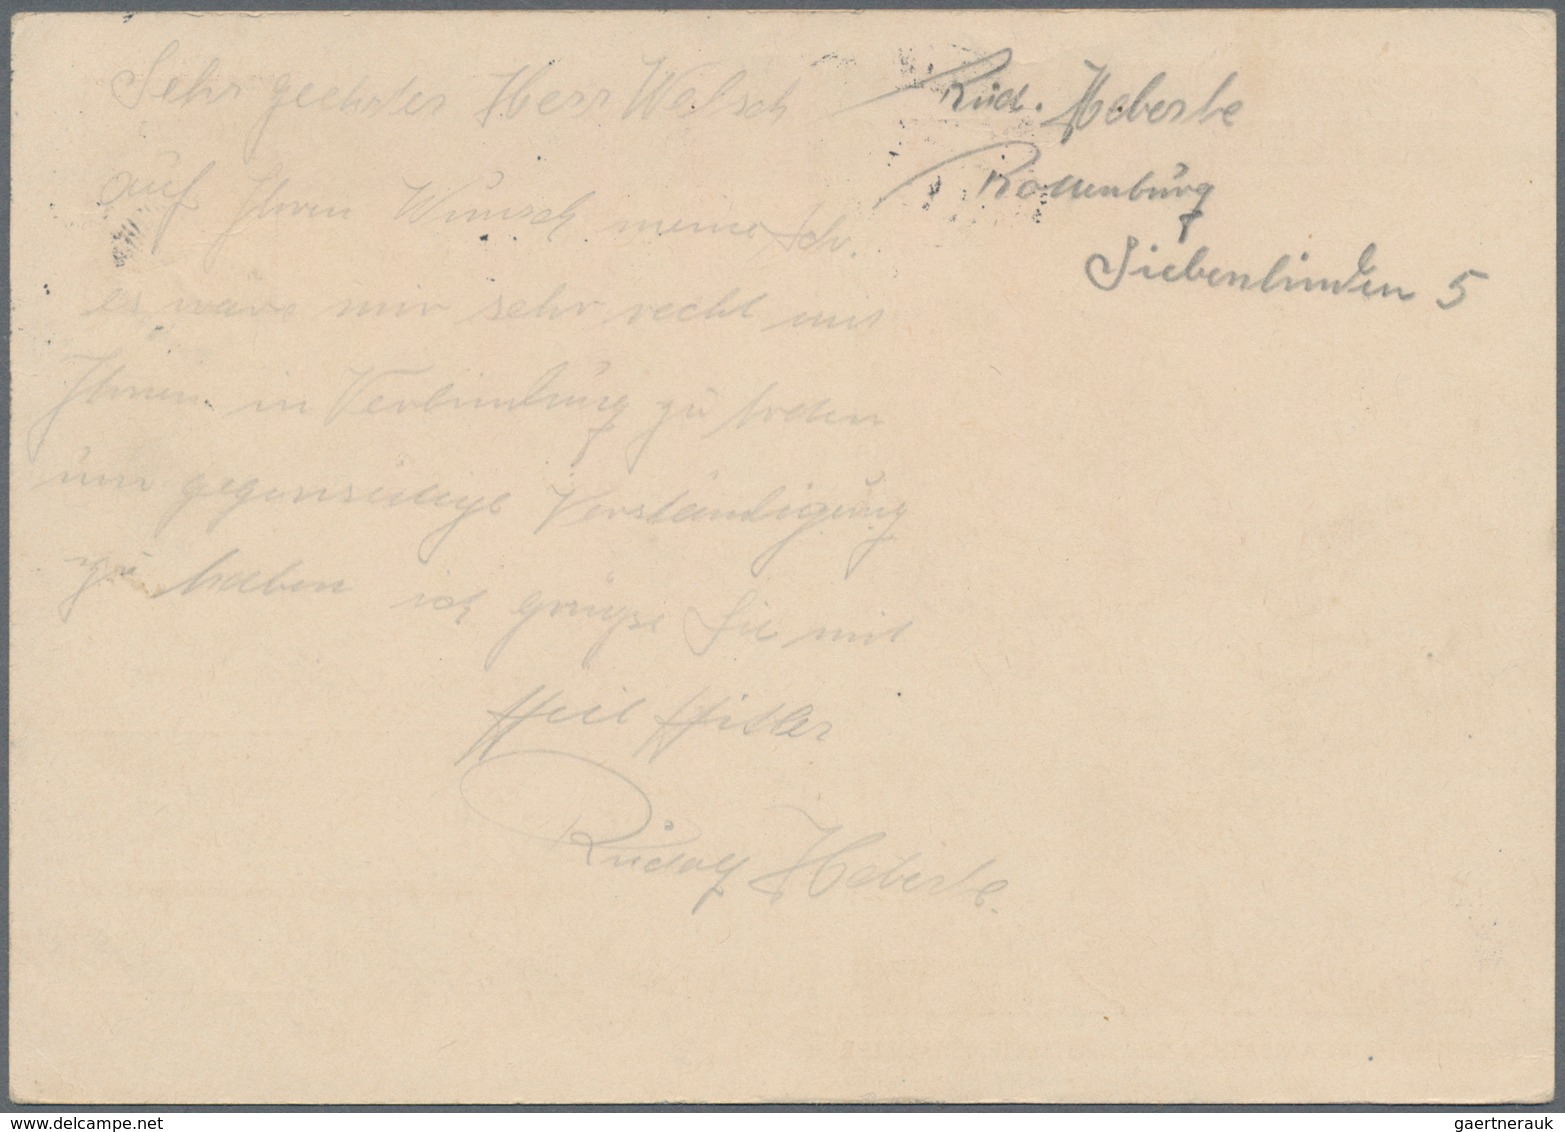 Sehr geehrter Herr Welsch
auf Ihren Wunsch meine Adr.
es wäre mir sehr recht mit
Ihnen in Verbindung zu treten
um gegenseitige Verständigung
zu haben ich grüsse Sie mit
Heil Hitler
Rudolf Heberle.
Rud. Heberle
Rottenburg
Siebenlinden 5
gaertnerauk @ delcampe.net